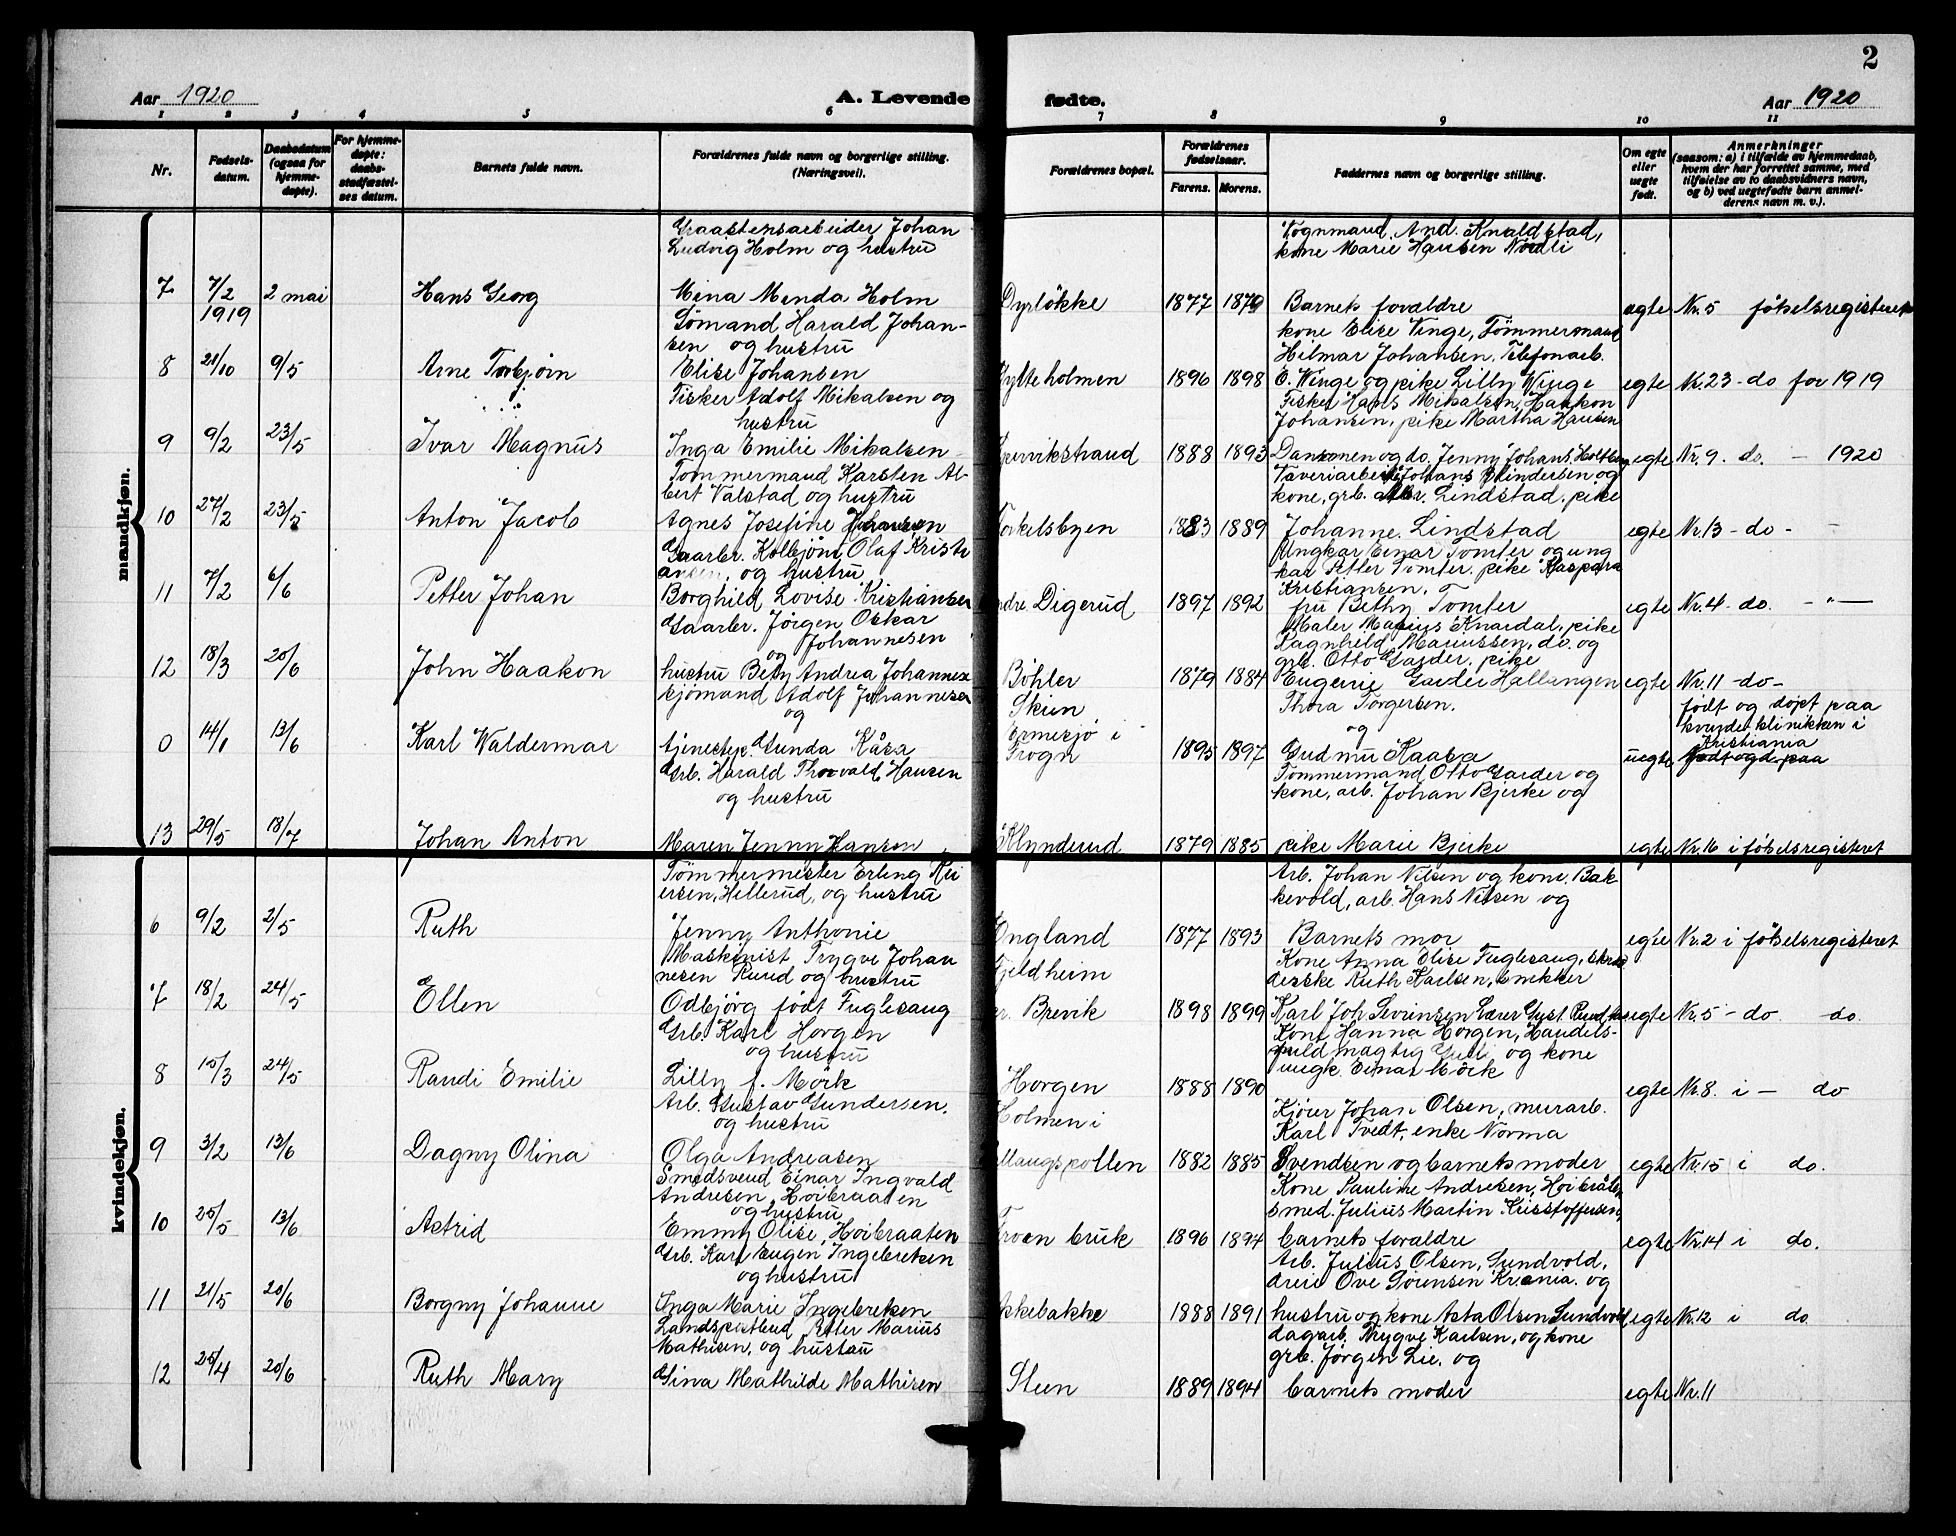 2
Aar 1920
A. Levende fødte.
Aar 1920
1 2 3 4 5 6 7 8 9 10 11
Nr.
Fødsels-
datum.
Daabsdatum
(ogsaa for
hjemme-
døpte).
For hjemme-
døpte:
daabs-
stadfæstel-
ses datum.
Barnets fulde navn.
Forældrenes fulde navn og borgerlige stilling.
(Næringsvei).
Forældrenes bopæl.
Forældrenes
fødselsaar.
Farens. Morens.
Faddernes navn og borgerlige stilling.
Om egte
eller
uegte
født.
Anmerkninger
(saasom: a) i tilfælde av hjemmedaab,
hvem der har forrettet samme, med
tilføielse av to daabsvidners navn,
og b) ved uegtefødte barn anmel-
derens navn m. v.).
mandkjøn.
Graastensarbeider Johan
Ludvig Holm og hustru
Lognmand. And. Knaldstad,
kone Marie Hansen Nordli
7 7/2 2 mai Hans Georg Mina Menda Holm Dyrløkke 1877 1879 Barnets forældre egte Nr. 5 fødselsregisteret
1919
Sømand Harald Johan-
sen og hustru
kone Elise Vinge, Tømmermand
Hilmar Johansen, Telefonarb.
8 21/10 9/5 Arne Torbjørn Elise Johansen Hytteholmen 1896 1898 E. Winge og pike Lilly Winge egte Nr. 23 - do for 1919
Fisker Adolf Mikalsen og
hustru
Fisker Hans Mikalsen, Haakon
Johansen, pike Martha Hansen
9 9/2 23/5 Ivar Magnus Inga Emilie Mikalsen 1888 1893 egte Nr. 9. do. - 1920
Tømmermand Karsten Al-
bert Valstad og hustru
kone, grb. Lindstad. pike
10 27/2 23/5 Anton Jacob Agnes Josefine Johansen Torkelsbyen 1883 1889 Johanne. Lindstad egte Nr. 13 - do - -
Gaarbr. Kolbjørn Olaf Kristi
ansen, og hustru
Ungkar Einar Tomter og ung
kar Petter Tomter. pike Kaspara
Kristiansen.
11 7/2 6/6 Petter Johan Borghild Lovise Kristiansen ndre Digerud 1897 1892 fru Bethy Tomter egte Nr. 4 - do. - " -
Gaarbr. Jørgen Oskar
Johannesen
og
Maler Magius Knardal, pike
Ragnhild Mariussen, do. og
grb. Otto Garder. pike
12 18/3 20/6 John Haakon hustru Bety Andrea Johannes Bøhler 1879 1884 Eugenie Garder Hallangen egte Nr. 11 - do -
sjømand Adolf Johannesen
og
Skiin
Ermesjø i
Thora Torgersen.
og
født og døpt paa
kvindeklinikken i
Kristiania
0 14/1 13/6 Karl Waldermar tjenestep. Gunda Kåsa Frogn 1895 1897 Gudmu Kaasa uegte
Grb. Harald Thorvald Hansen
og hustru
Tømmermand Otto Garder og
kone, arb. Johan Bjerke og
13 29/5 18/7 Johan Anton Maren Jenny Hansen Klynderud 1879 1885 pike Marie Bjerke egte Nr. 16 i fødselsregisteret
kvindekjøn.
Tømmermester Erling Rei
ersen, Hellerud, og hustru
Arb. Johan Nilsen og kone. Bak-
kevold, arb. Hans Nilsen og
6 9/2 2/5 Ruth Jenny Anthonie Ongland 1877 1893 Barnets mor egte Nr. 2 i fødselsregisteret
Maskinist Trygve Johan
nesen Ruud og hustru
Fjeldheim
Kone Anna Elise Fuglesaug,
derske Ruth Karlsen, snekker
7 18/2 24/5 Ellen Odbjørg født Fuglesaug Brevik 1898 1899 Karl Joh Sevrinsen egte Nr. 5 - do do.
Grb. Karl Horgen
og hustru
Kone Hanna Horgen, Handels-
fuldmægtig Juell og kone
ungk. Einar Mörk
8 15/3 24/5 Randi Emilie Lilly f. Mörk Horgen 1888 1890 egte Nr. 8. i - do
Arb. Gustav Gundersen.
og hustru
Holmen i
Kjøier Johan Olsen, murarb.
Karl Tvedt, enke Norma
9 3/2 13/6 Dagny Olina Olga Andreasen llangspollen 1882 1885 Svendsen og barnets moder egte Nr. 15 i do.
Smedsvend Einar Ingvald
Andresen, Høibraaten
og hustru
Kone Pauline Andresen, Høibråten
smed. Julius Martin Kristoffersen,
10 25/5 13/6 Astrid Emmy Olise, Høibraaten Froen bruk 1896 1894 barnets foraldre egte Nr. 14 i do.
Grb. Karl Eugen Ingebretsen
og hustru
Arb. Julius Olsen, Sundvold,
dreier Ove Sørensen Krania. og
11 21/5 20/6 Borgny Johanne Inga Marie Ingebretsen kkebakke 1888 1891 hustru og kone Asta Olsen Sundvold, egte Nr. 12 i do
Landspostbud Peter Marius
Mathisen, og hustau
dagarb. Trygve Karlsen, og kone
grb. Jørgen Lie. og
12 25/4 20/6 Ruth Mary Gina Mathilde Mathisen Steen 1889 1894 barnets moder egte Nr. 11